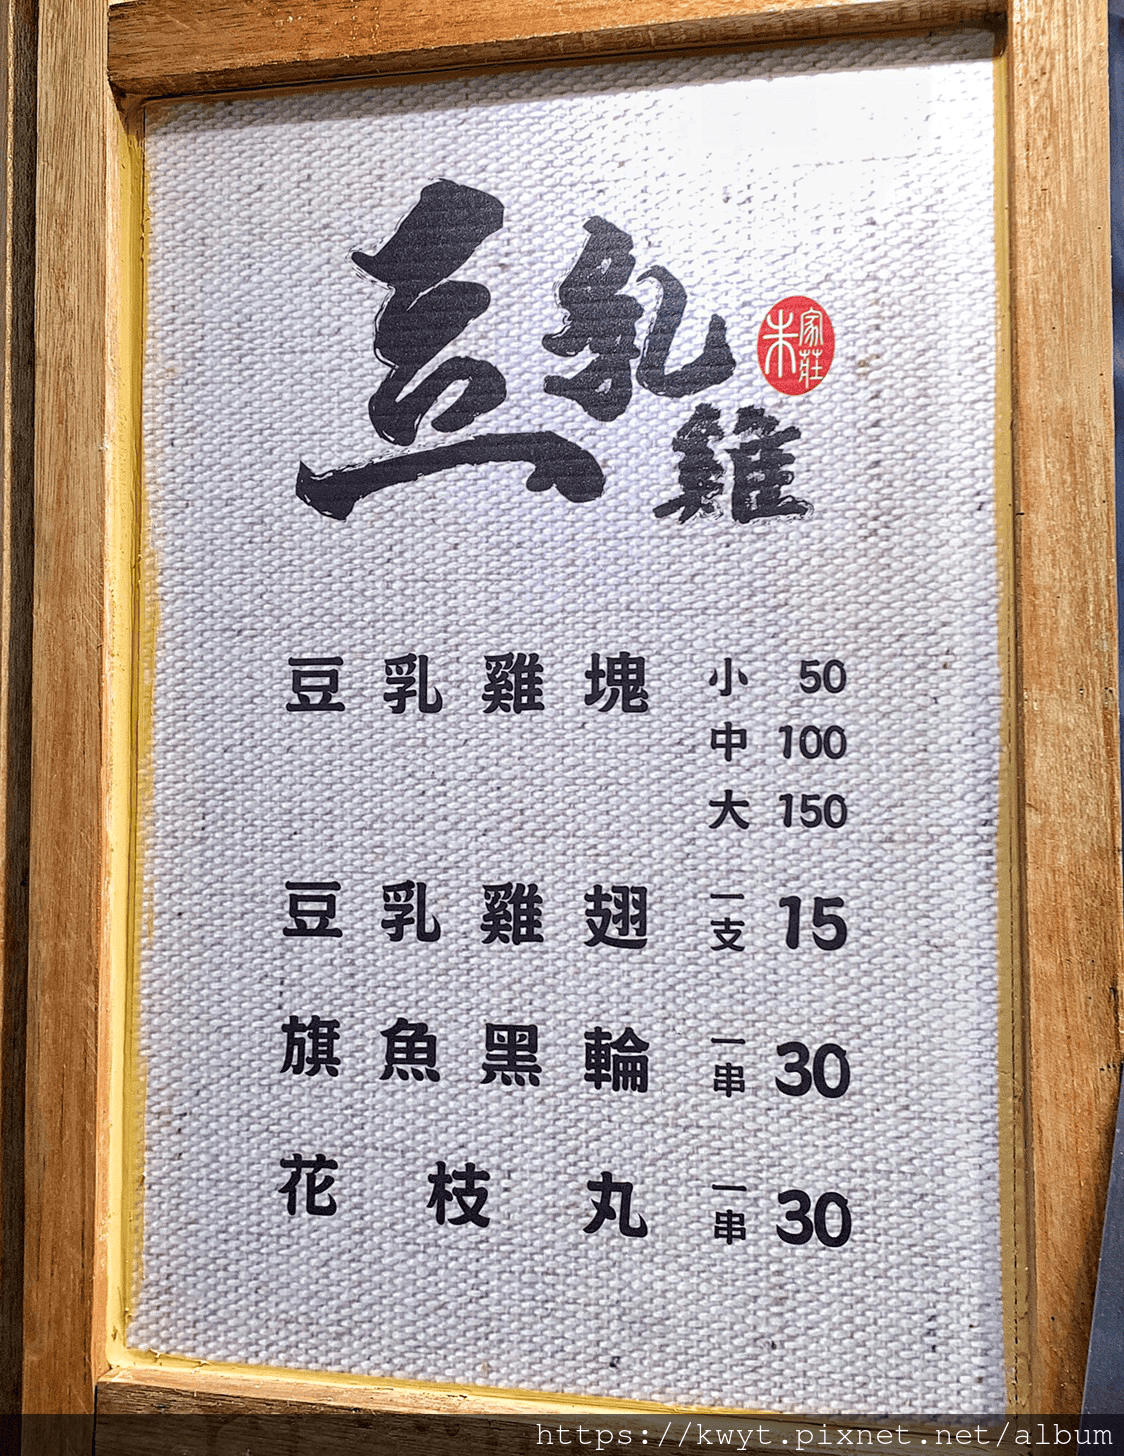 豆乳雞
朱家莊
豆乳雞塊 小 50
中 100
大 150
豆乳雞翅 一支 15
旗魚黑輪 一串 30
花枝丸 一串 30
https://kwyt.pixnet.net/album